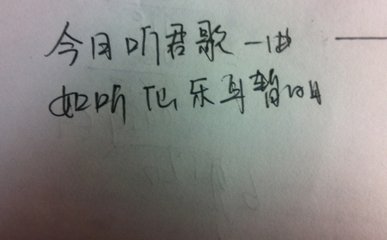 今日听君歌一曲
如听仙乐耳暂明